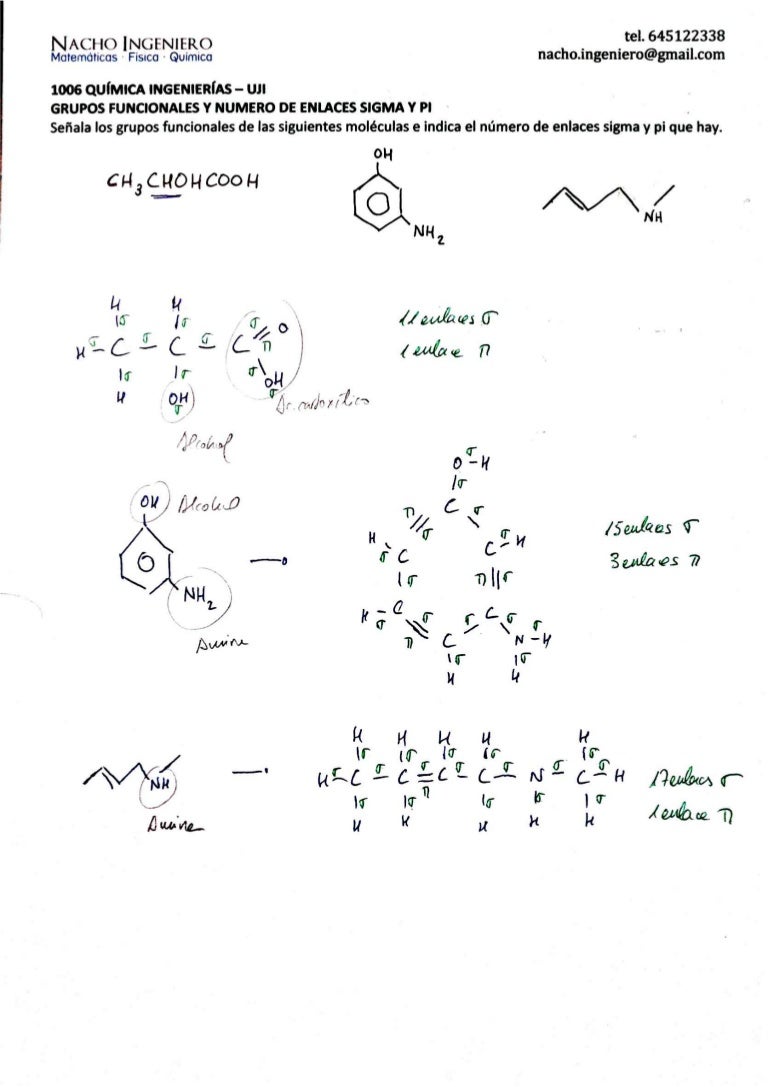 NACHO INGENIERO
Matemáticas · Física · Química
tel. 645122338
nacho.ingeniero@gmail.com
1006 QUÍMICA INGENIERÍAS – UJI
GRUPOS FUNCIONALES Y NUMERO DE ENLACES SIGMA Y PI
Señala los grupos funcionales de las siguientes moléculas e indica el número de enlaces sigma y pi que hay.
CH3CHOHCOOH
OH
NH2
NH
H H
σ σ σ O
H σ C σ C σ C π
σ σ σ OH
H OH σ
σ
11 enlaces σ
1 enlace π
Ac. carboxílico
Alcohol
OH Alcohol
NH2
Amine
O σ H
σ
π C σ
σ
H C C σ H
σ σ π σ
H C σ σ C σ σ
σ π C N H
σ σ
H H
15 enlaces σ
3 enlaces π
NH
Amine
H H H H H
σ σ σ σ σ
H σ C σ C σ C σ C σ N σ C σ H
π
σ σ σ σ σ
H H H H H
17 enlaces σ
1 enlace π